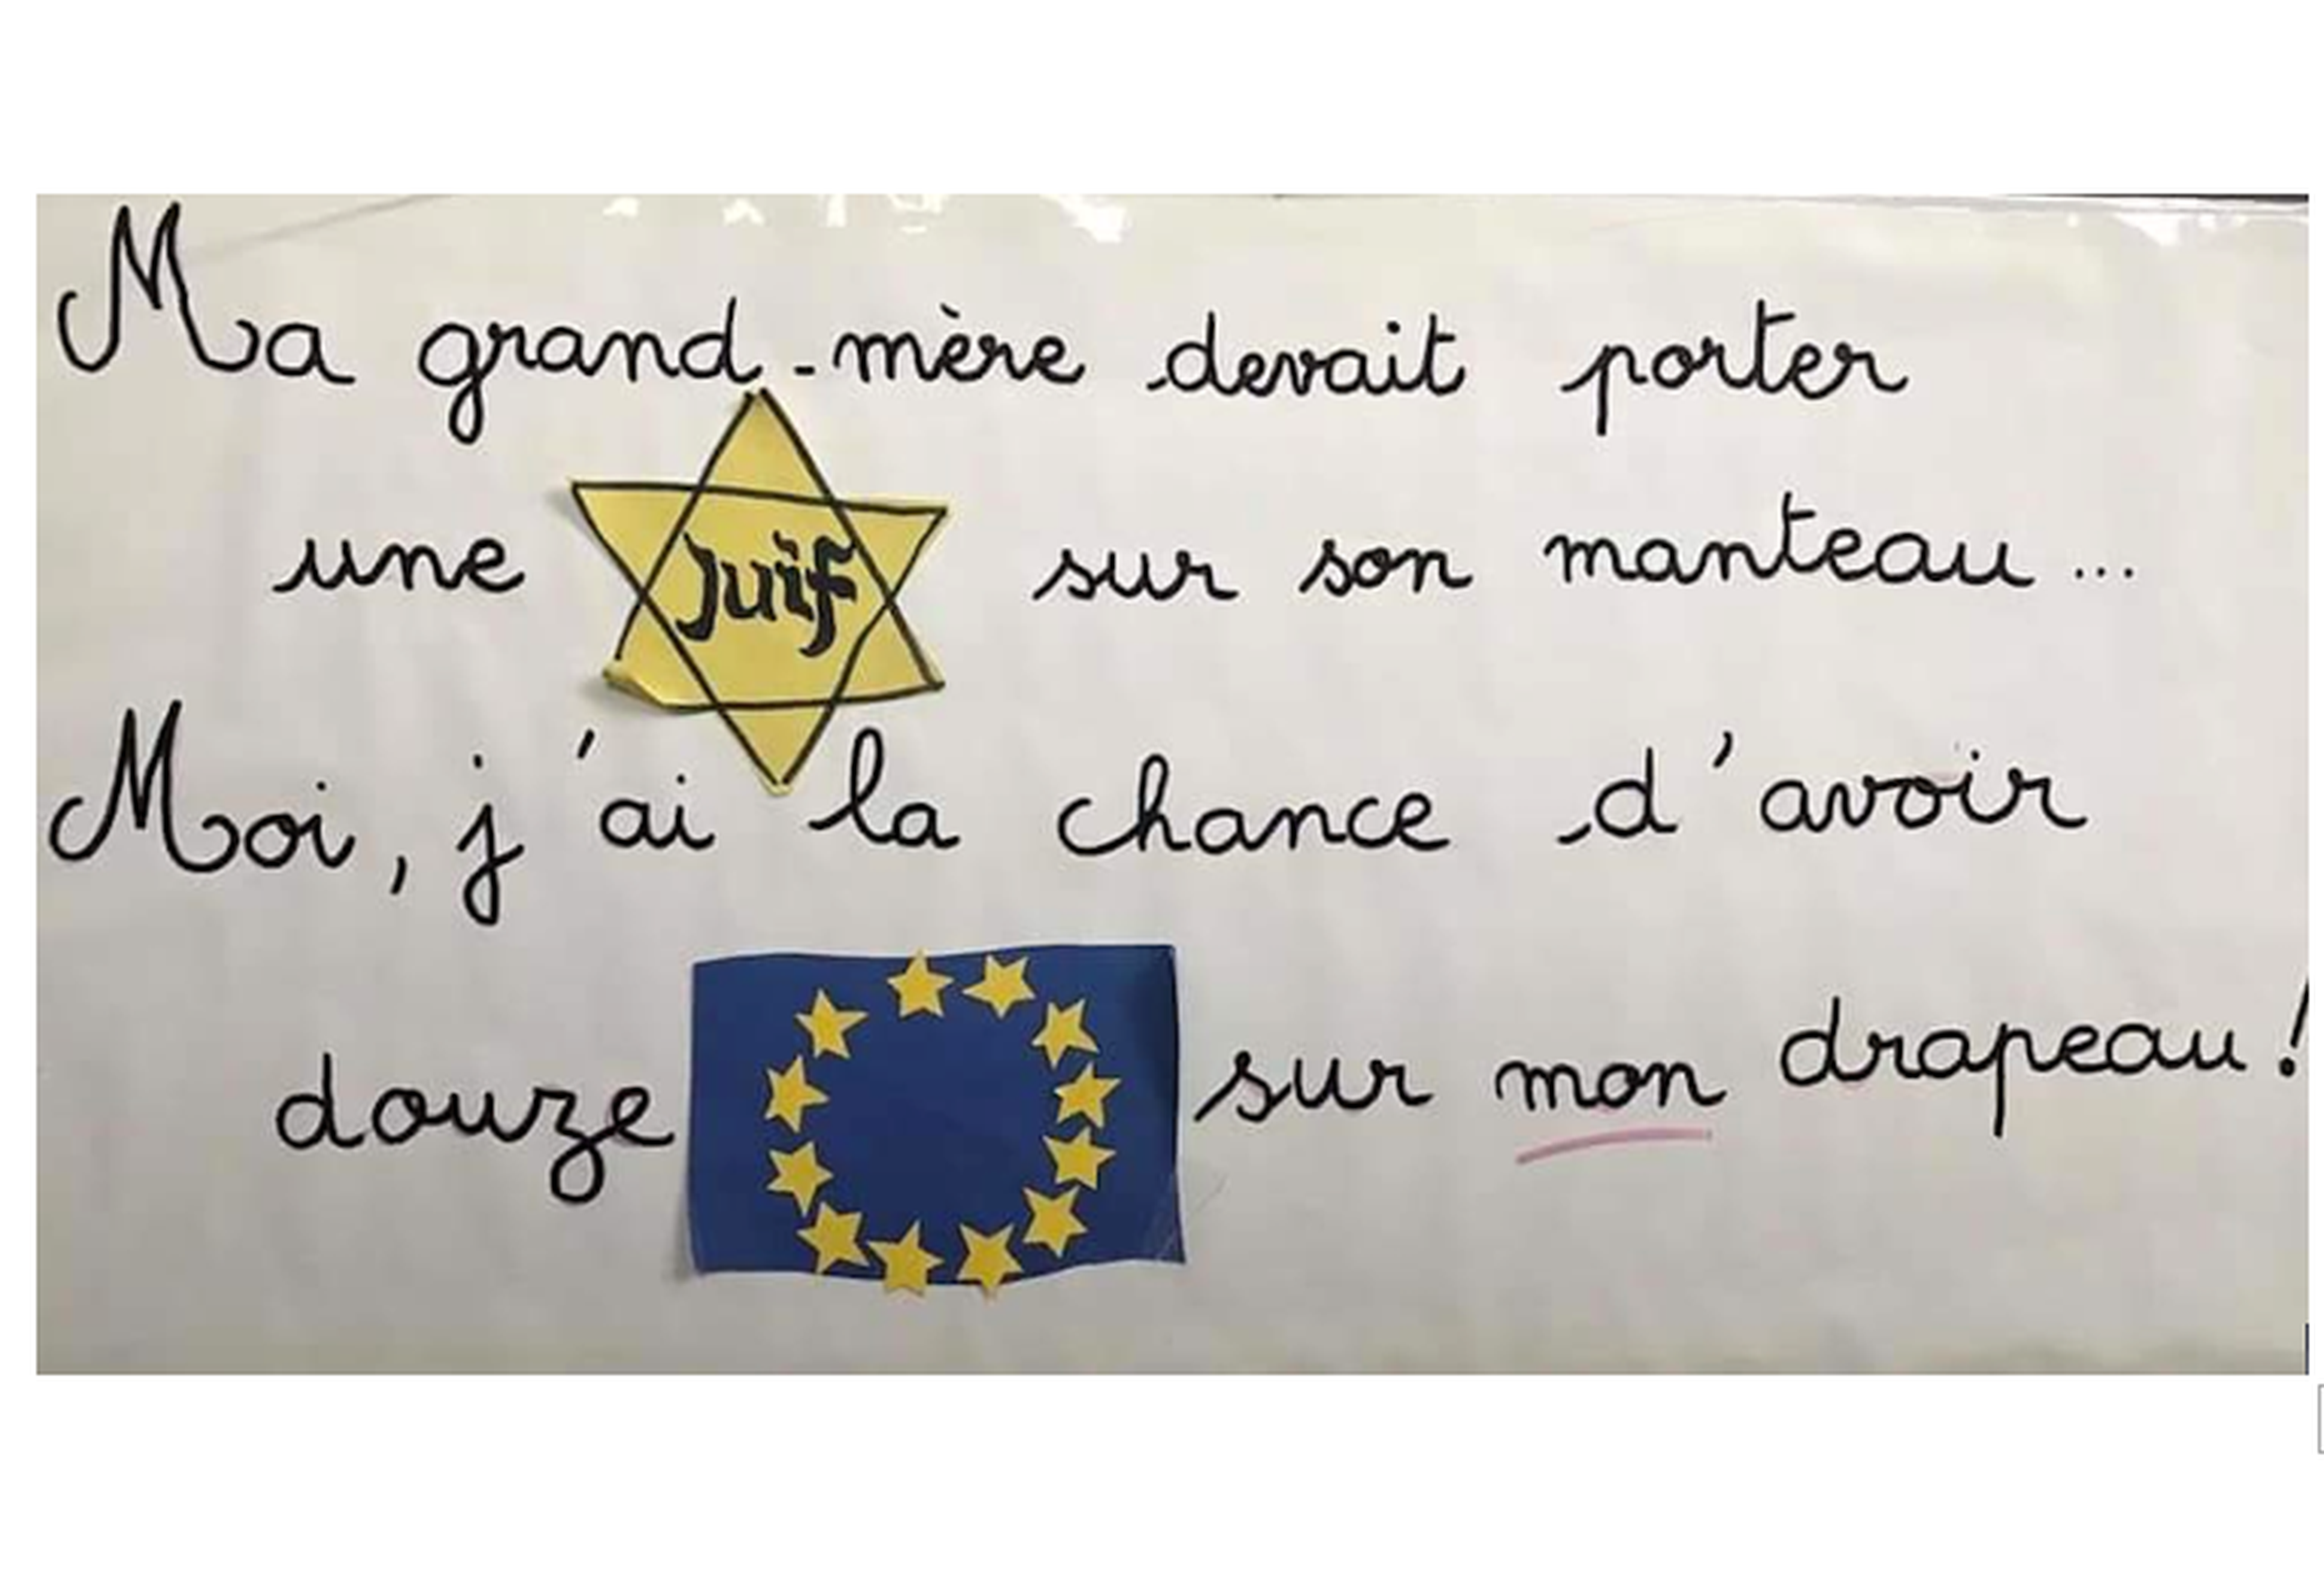 Ma grand-mère devait porter
une Juif sur son manteau...
Moi, j'ai la chance d'avoir
douze sur mon drapeau !